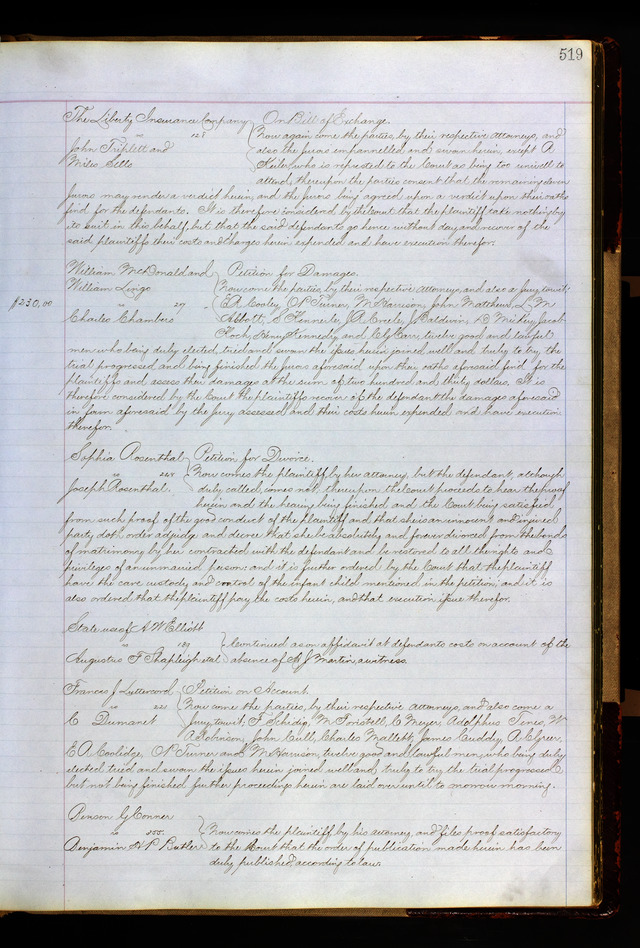 519
The Liberty Insurance Company On Bill of Exchange.
vs 128 Now again come the parties, by their respective attorneys, and
John Triplett and also the Jurors empannelled and sworn herein, except A
Miles Sells who is reported to the Court as being too unwell to
attend, thereupon the parties consent that the remaining eleven
Jurors may render a verdict herein, and the Jurors being agreed upon a verdict upon their oaths
find for the defendants. It is therefore considered by the Court that the plaintiff take nothing by
its suit in this behalf but that the said defendants go hence without day and recover of the
said plaintiffs their costs and charges herein expended and have execution therefor.
William McDonald and Petition for Damages.
William Lingo Now come the parties, by their respective attorneys, and also a jury towit:
$230.00 vs 27 E A Cooley, O P Turner, W Harrison, John Matthews, L M
Charles Chambers Abbott, S Kennerly, J A Coyle, J Baldwin, Jacob
Koch, Henry Kennedy, and C G Carr, twelve good and lawful
men who being duly elected, tried and sworn the issues herein joined well and truly to try, the
trial progressed and being finished the Jurors aforesaid upon their oaths aforesaid find for the
plaintiffs and assess their damages at the sum of two hundred and thirty dollars. It is
therefore considered by the Court the plaintiffs recover of the defendant the damages aforesaid
in form aforesaid by the jury assessed and their costs herein expended and have execution
therefor.
Sophia Rosenthal Petition for Divorce.
vs 264 Now comes the plaintiff by her attorney, but the defendant, although
Joseph Rosenthal. duly called, comes not, thereupon the Court proceeds to hear the proof
herein and the hearing being finished and the Court being satisfied
from such proof of the good conduct of the plaintiff and that she is an innocent and injured
party doth order adjudge and decree that she be absolutely and forever divorced from the bonds
of matrimony by her contracted with the defendant and be restored to all the rights and
privileges of an unmarried person: and it is further ordered by the Court that the plaintiff
have the care custody and control of the infant child mentioned in the petition, and it is
also ordered that the plaintiff pay the costs herein, and that execution issue therefor.
State use of A W Elliott
vs 189 Continued as on affidavit at defendants costs on account of the
Augustus F Shapleigh et al absence of A J Martin, a witness.
Frances J Luttercord Petition on Account.
vs 221 Now come the parties, by their respective attorneys, and also come a
C Dumaret Jury, towit, F Schidig, M Foristell, C Meyer, Adolphus Tines, W
A Johnson, John Cull, Charles Mallett, James Cuddy, A
E A Coolidge, O P Turner and W Harrison, twelve good and lawful men, who being duly
elected tried and sworn the issues herein joined well and truly to try the trial progressed
but not being finished further proceedings herein are laid over until to morrow morning.
Penson G Conner
vs 355 Now comes the plaintiff by his attorney, and files proof satisfactory
Benjamin A P Butler to the Court that the order of publication made herein has been
duly published according to law.